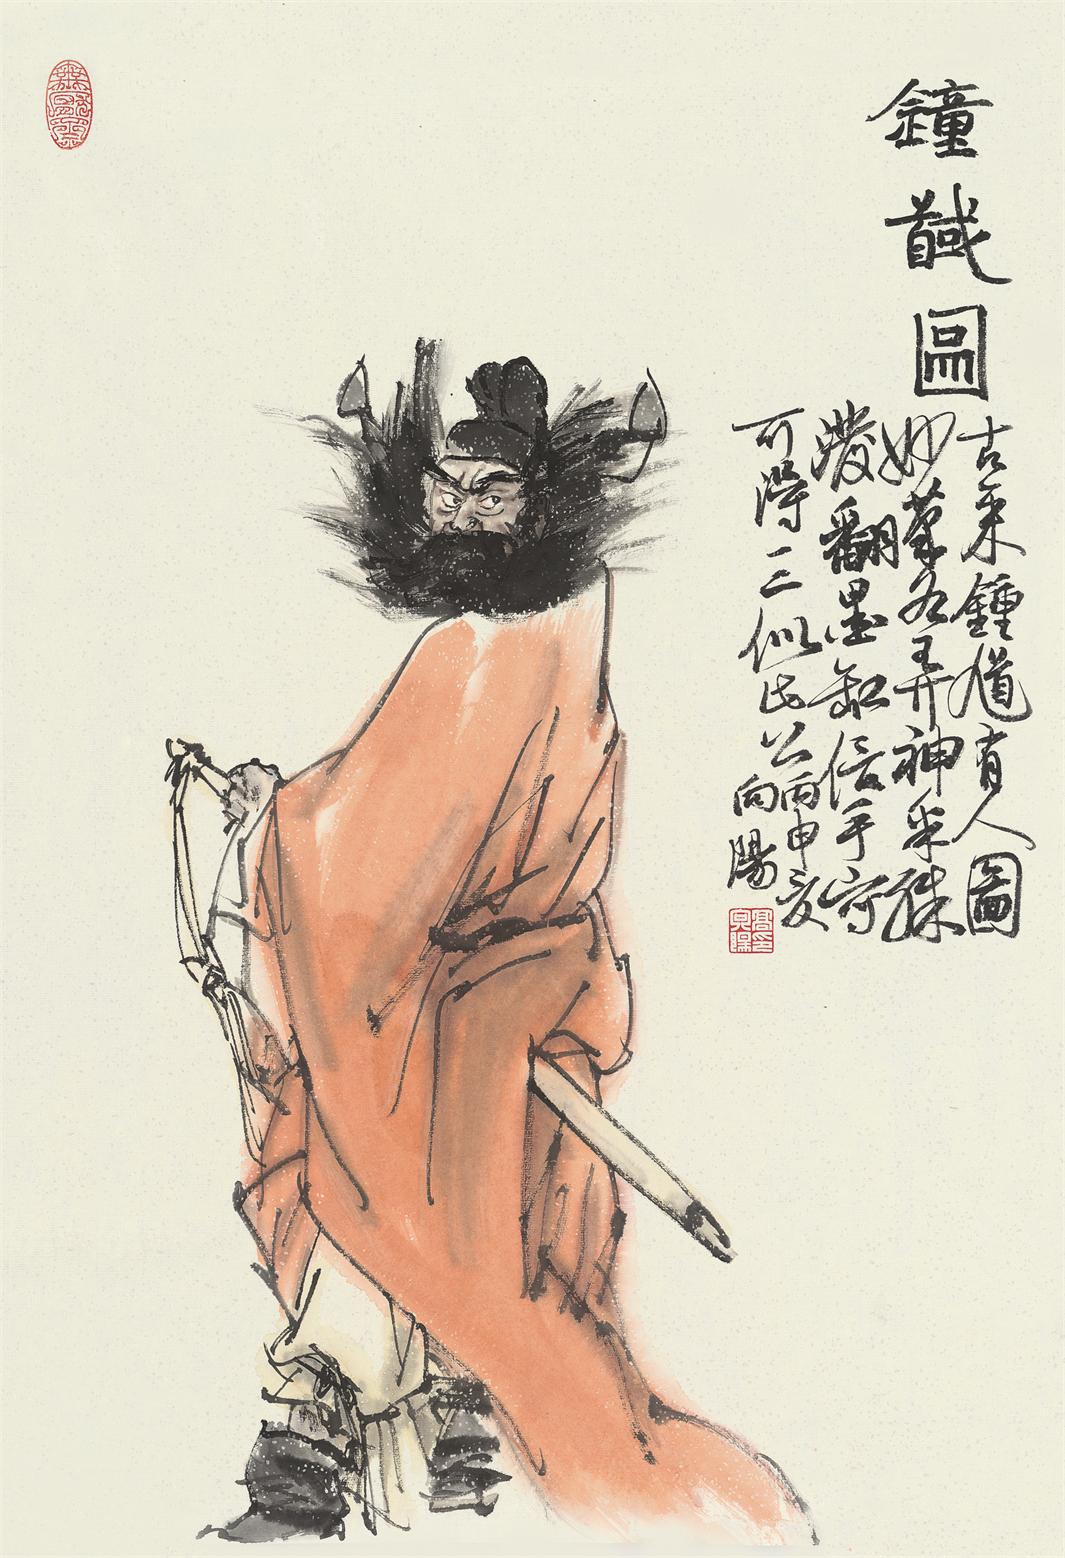 鐘馘圖
古來鍾馗有人圖
妙筆各弄神采殊
潑翻墨缸信手寫
可得一二似此公
丙申夏
向陽